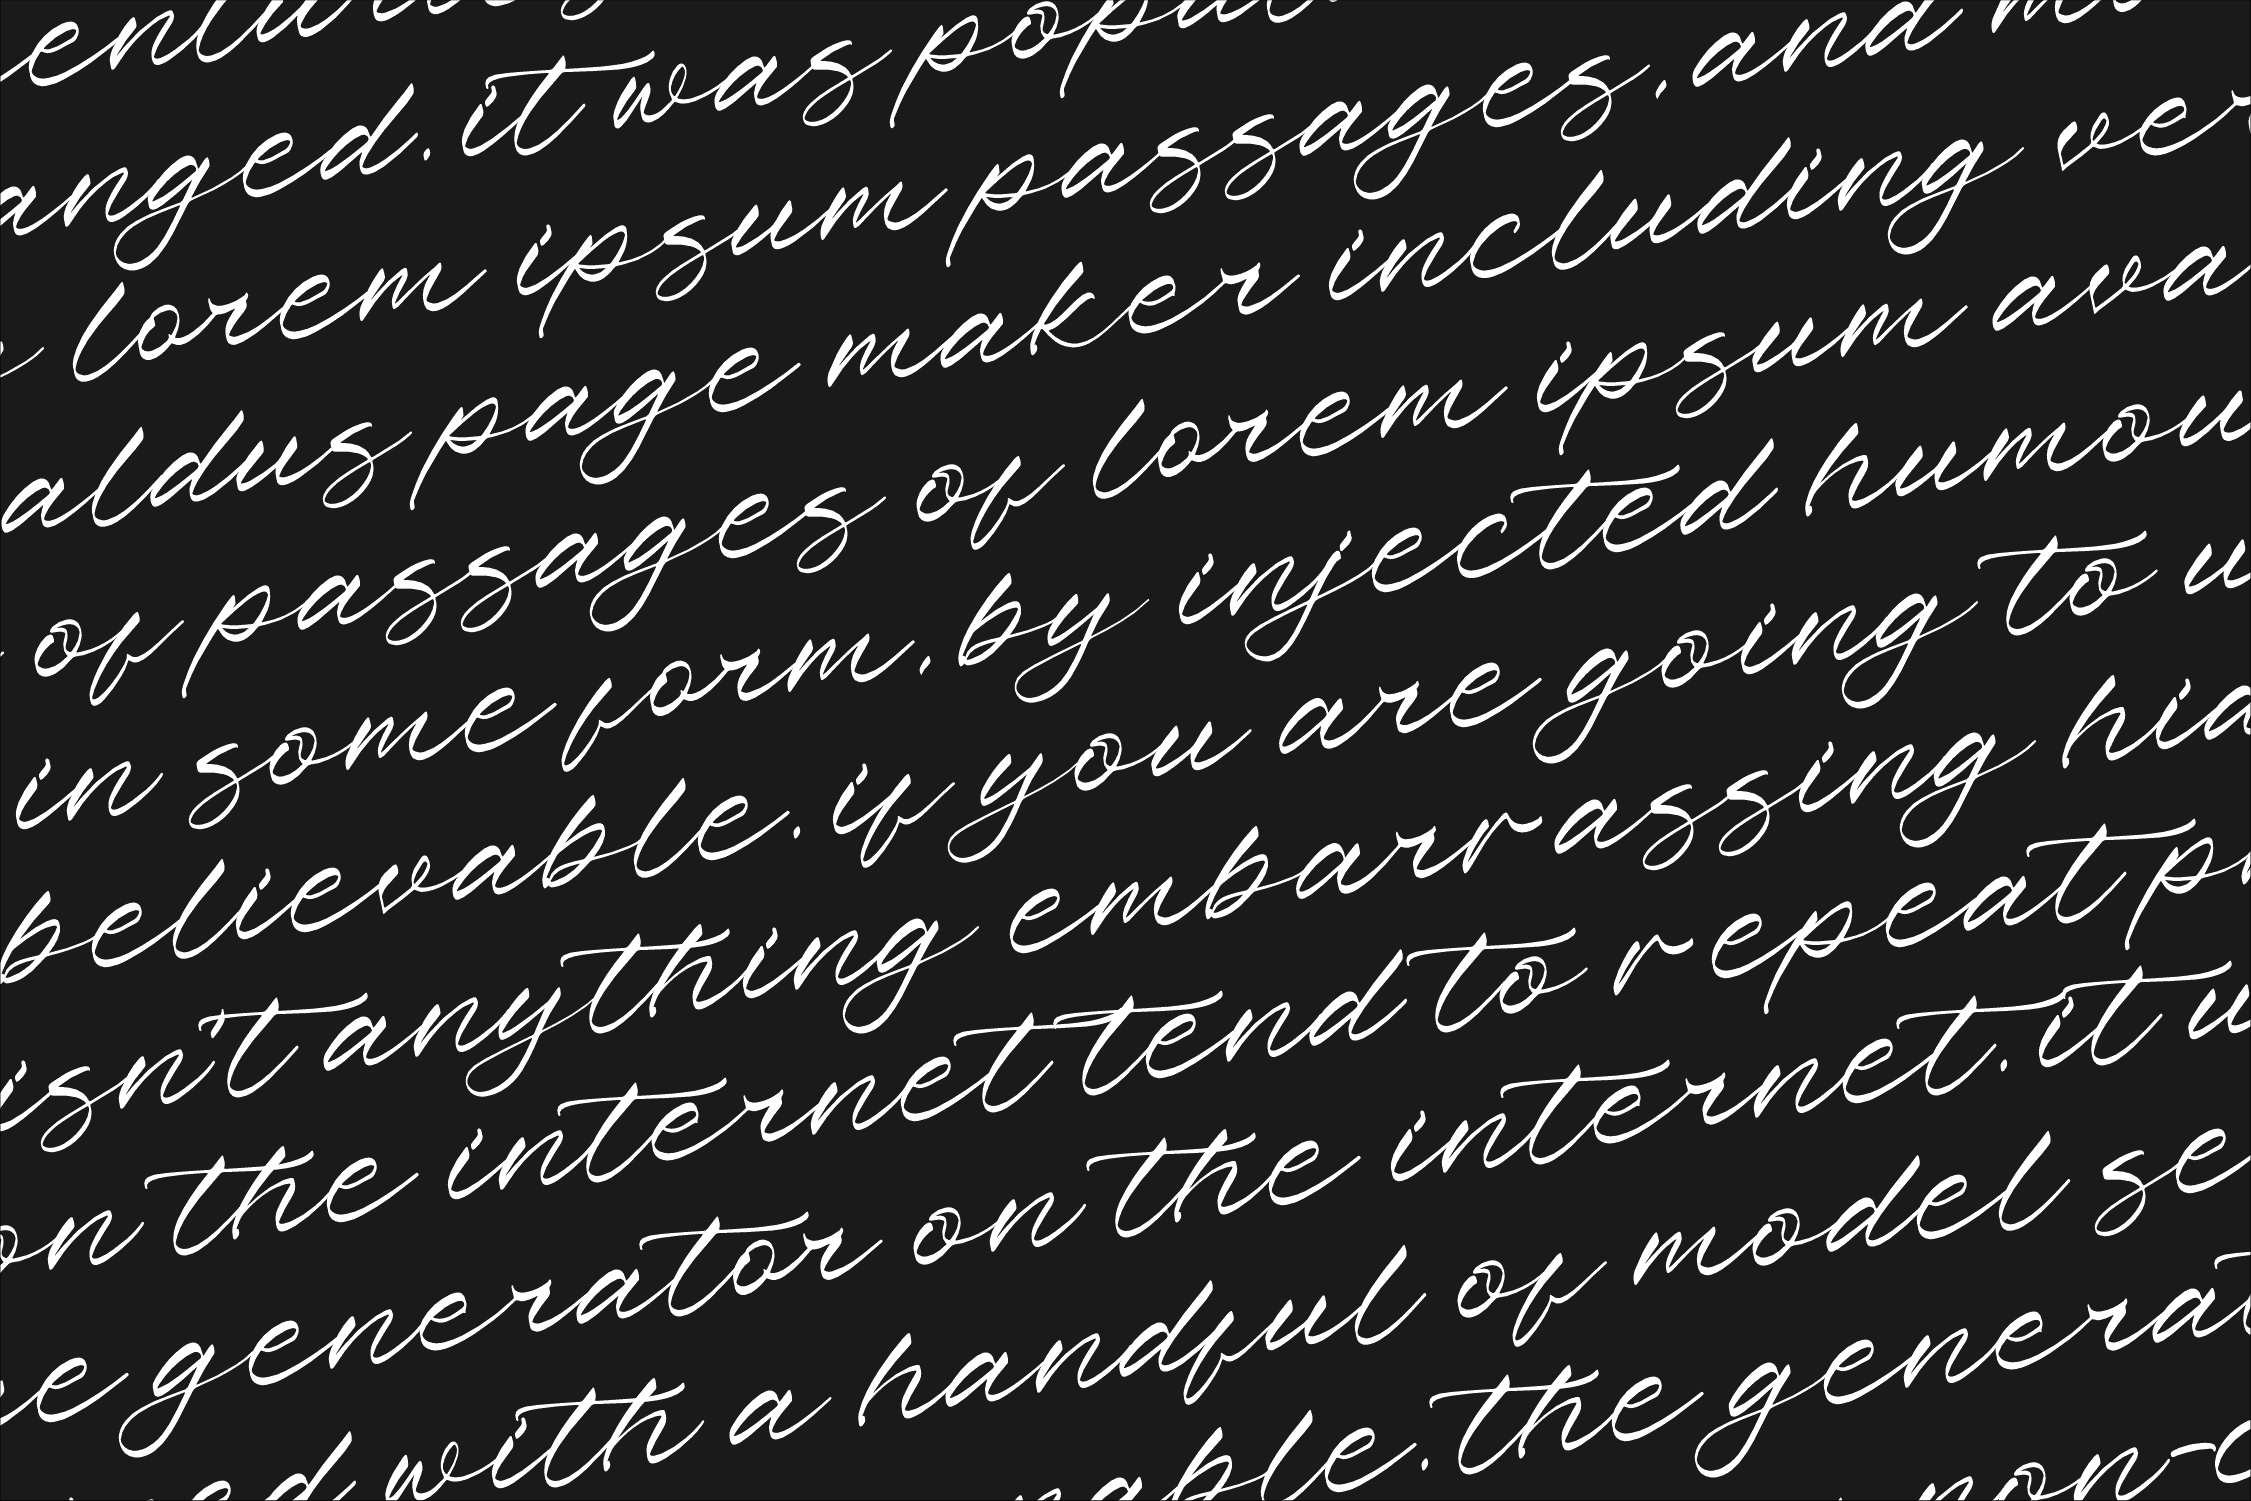 anged. it was popu
lorem ipsum passages. and m
aldus page maker including ver
of passages of lorem ipsum ava
in some form. by injected humou
believable. if you are going to u
isn't anything embarrassing hid
on the internet tend to repeat p
e generator on the internet. it u
ed with a handful of model se
able. the generat
non-